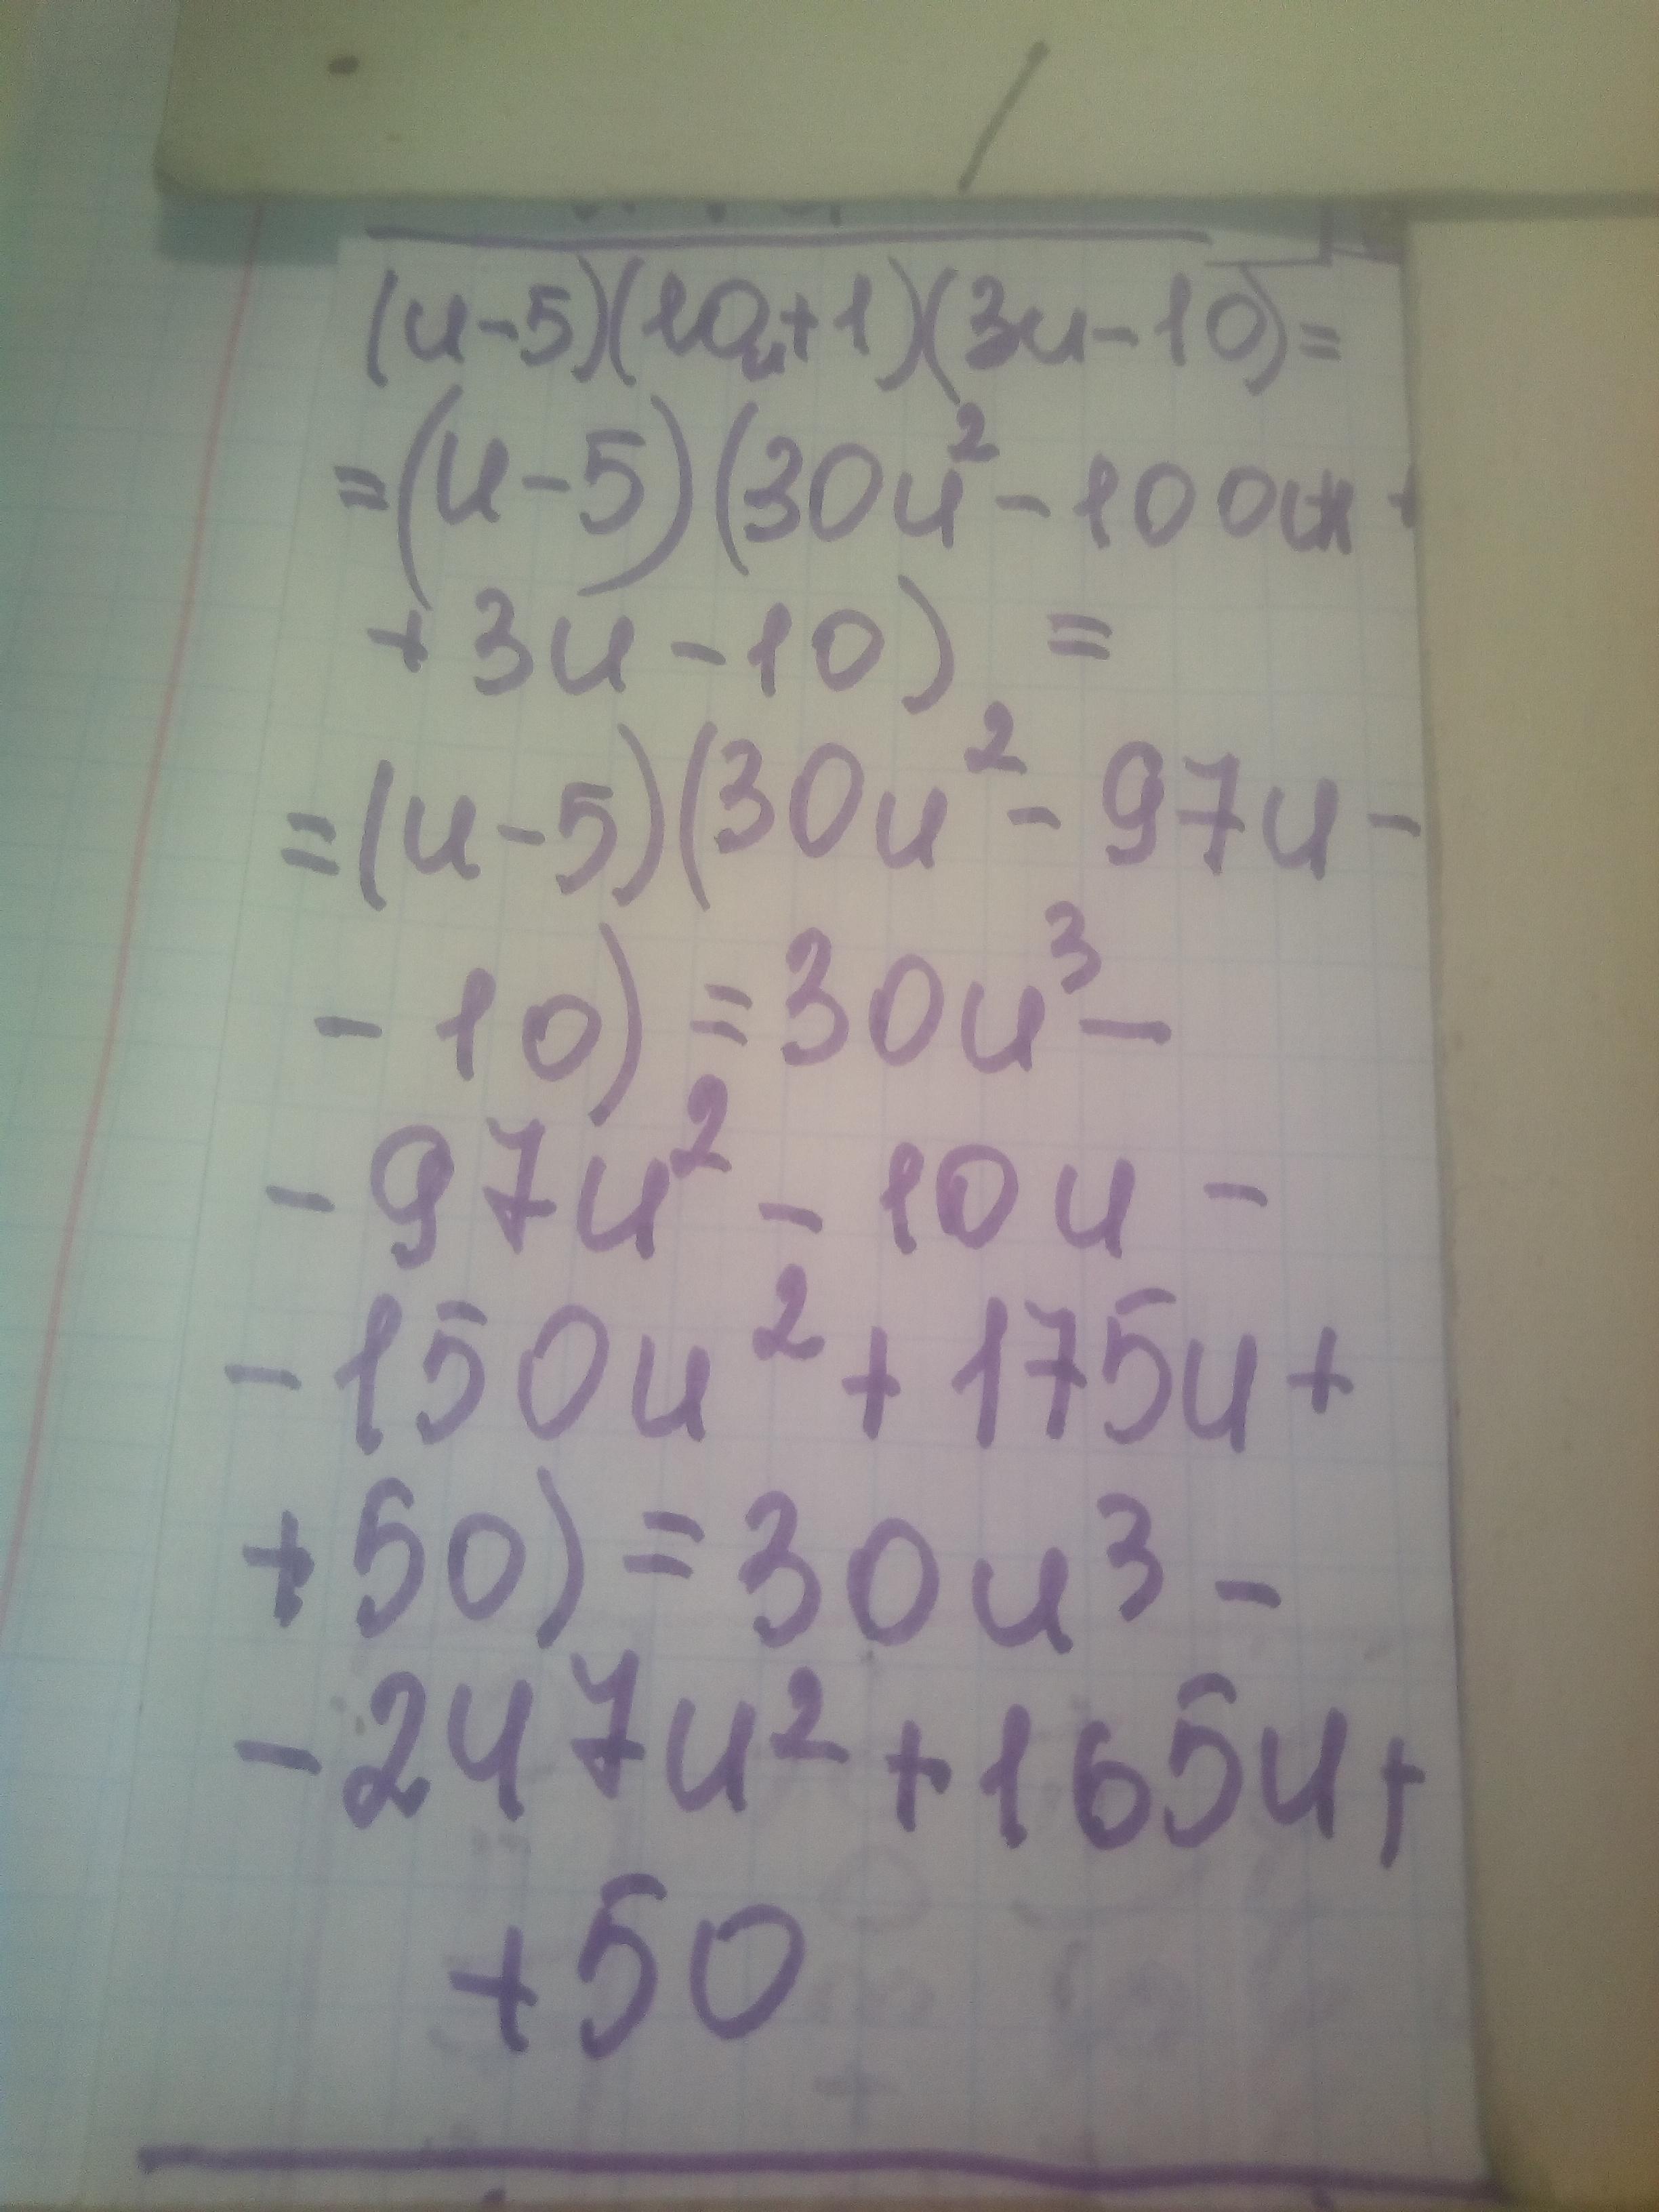 (u-5)(10u+1)(3u-10)=
=(u-5)(30u²-100u+
+3u-10) =
=(u-5)(30u²-97u-
-10)=30u³-
-97u²-10u-
-150u²+175u+
+50)=30u³-
-247u²+165u+
+50